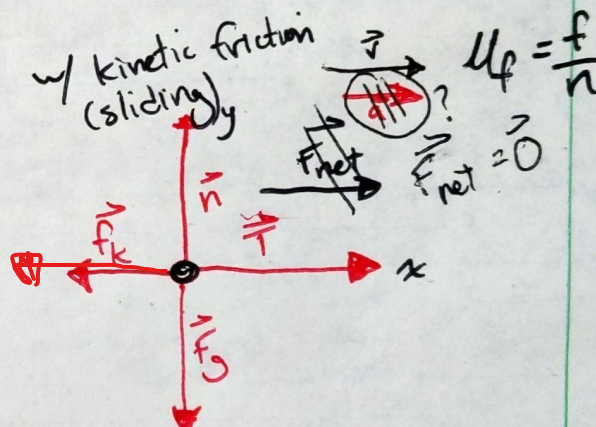 w/ kinetic friction
(sliding)
y
v⃗
a⃗ ?
μf = f/n
F⃗net
F⃗net = 0⃗
n⃗
f⃗k
T⃗
x
F⃗g